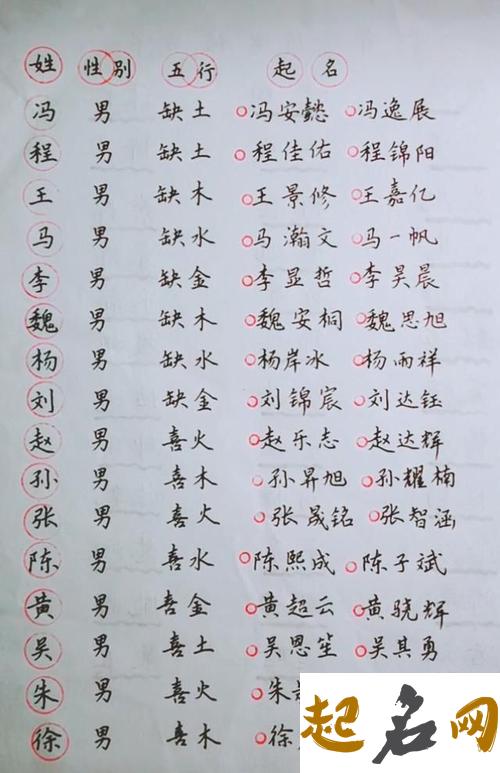 姓 性别 五行 起名
冯 男 缺土 冯安懿 冯逸展
程 男 缺土 程佳佑 程锦阳
王 男 缺木 王景修 王嘉亿
马 男 缺水 马瀚文 马一帆
李 男 缺金 李显哲 李昊晨
魏 男 缺木 魏安桐 魏思旭
杨 男 缺水 杨岸冰 杨雨祥
刘 男 缺金 刘锦宸 刘达钰
赵 男 喜火 赵乐志 赵达辉
孙 男 喜木 孙昇旭 孙耀楠
张 男 喜火 张晟铭 张智涵
陈 男 喜水 陈熙成 陈子斌
黄 男 喜金 黄超云 黄骁辉
吴 男 喜土 吴恩笙 吴其勇
朱 男 喜火 朱
徐 男 喜木 徐
起名网